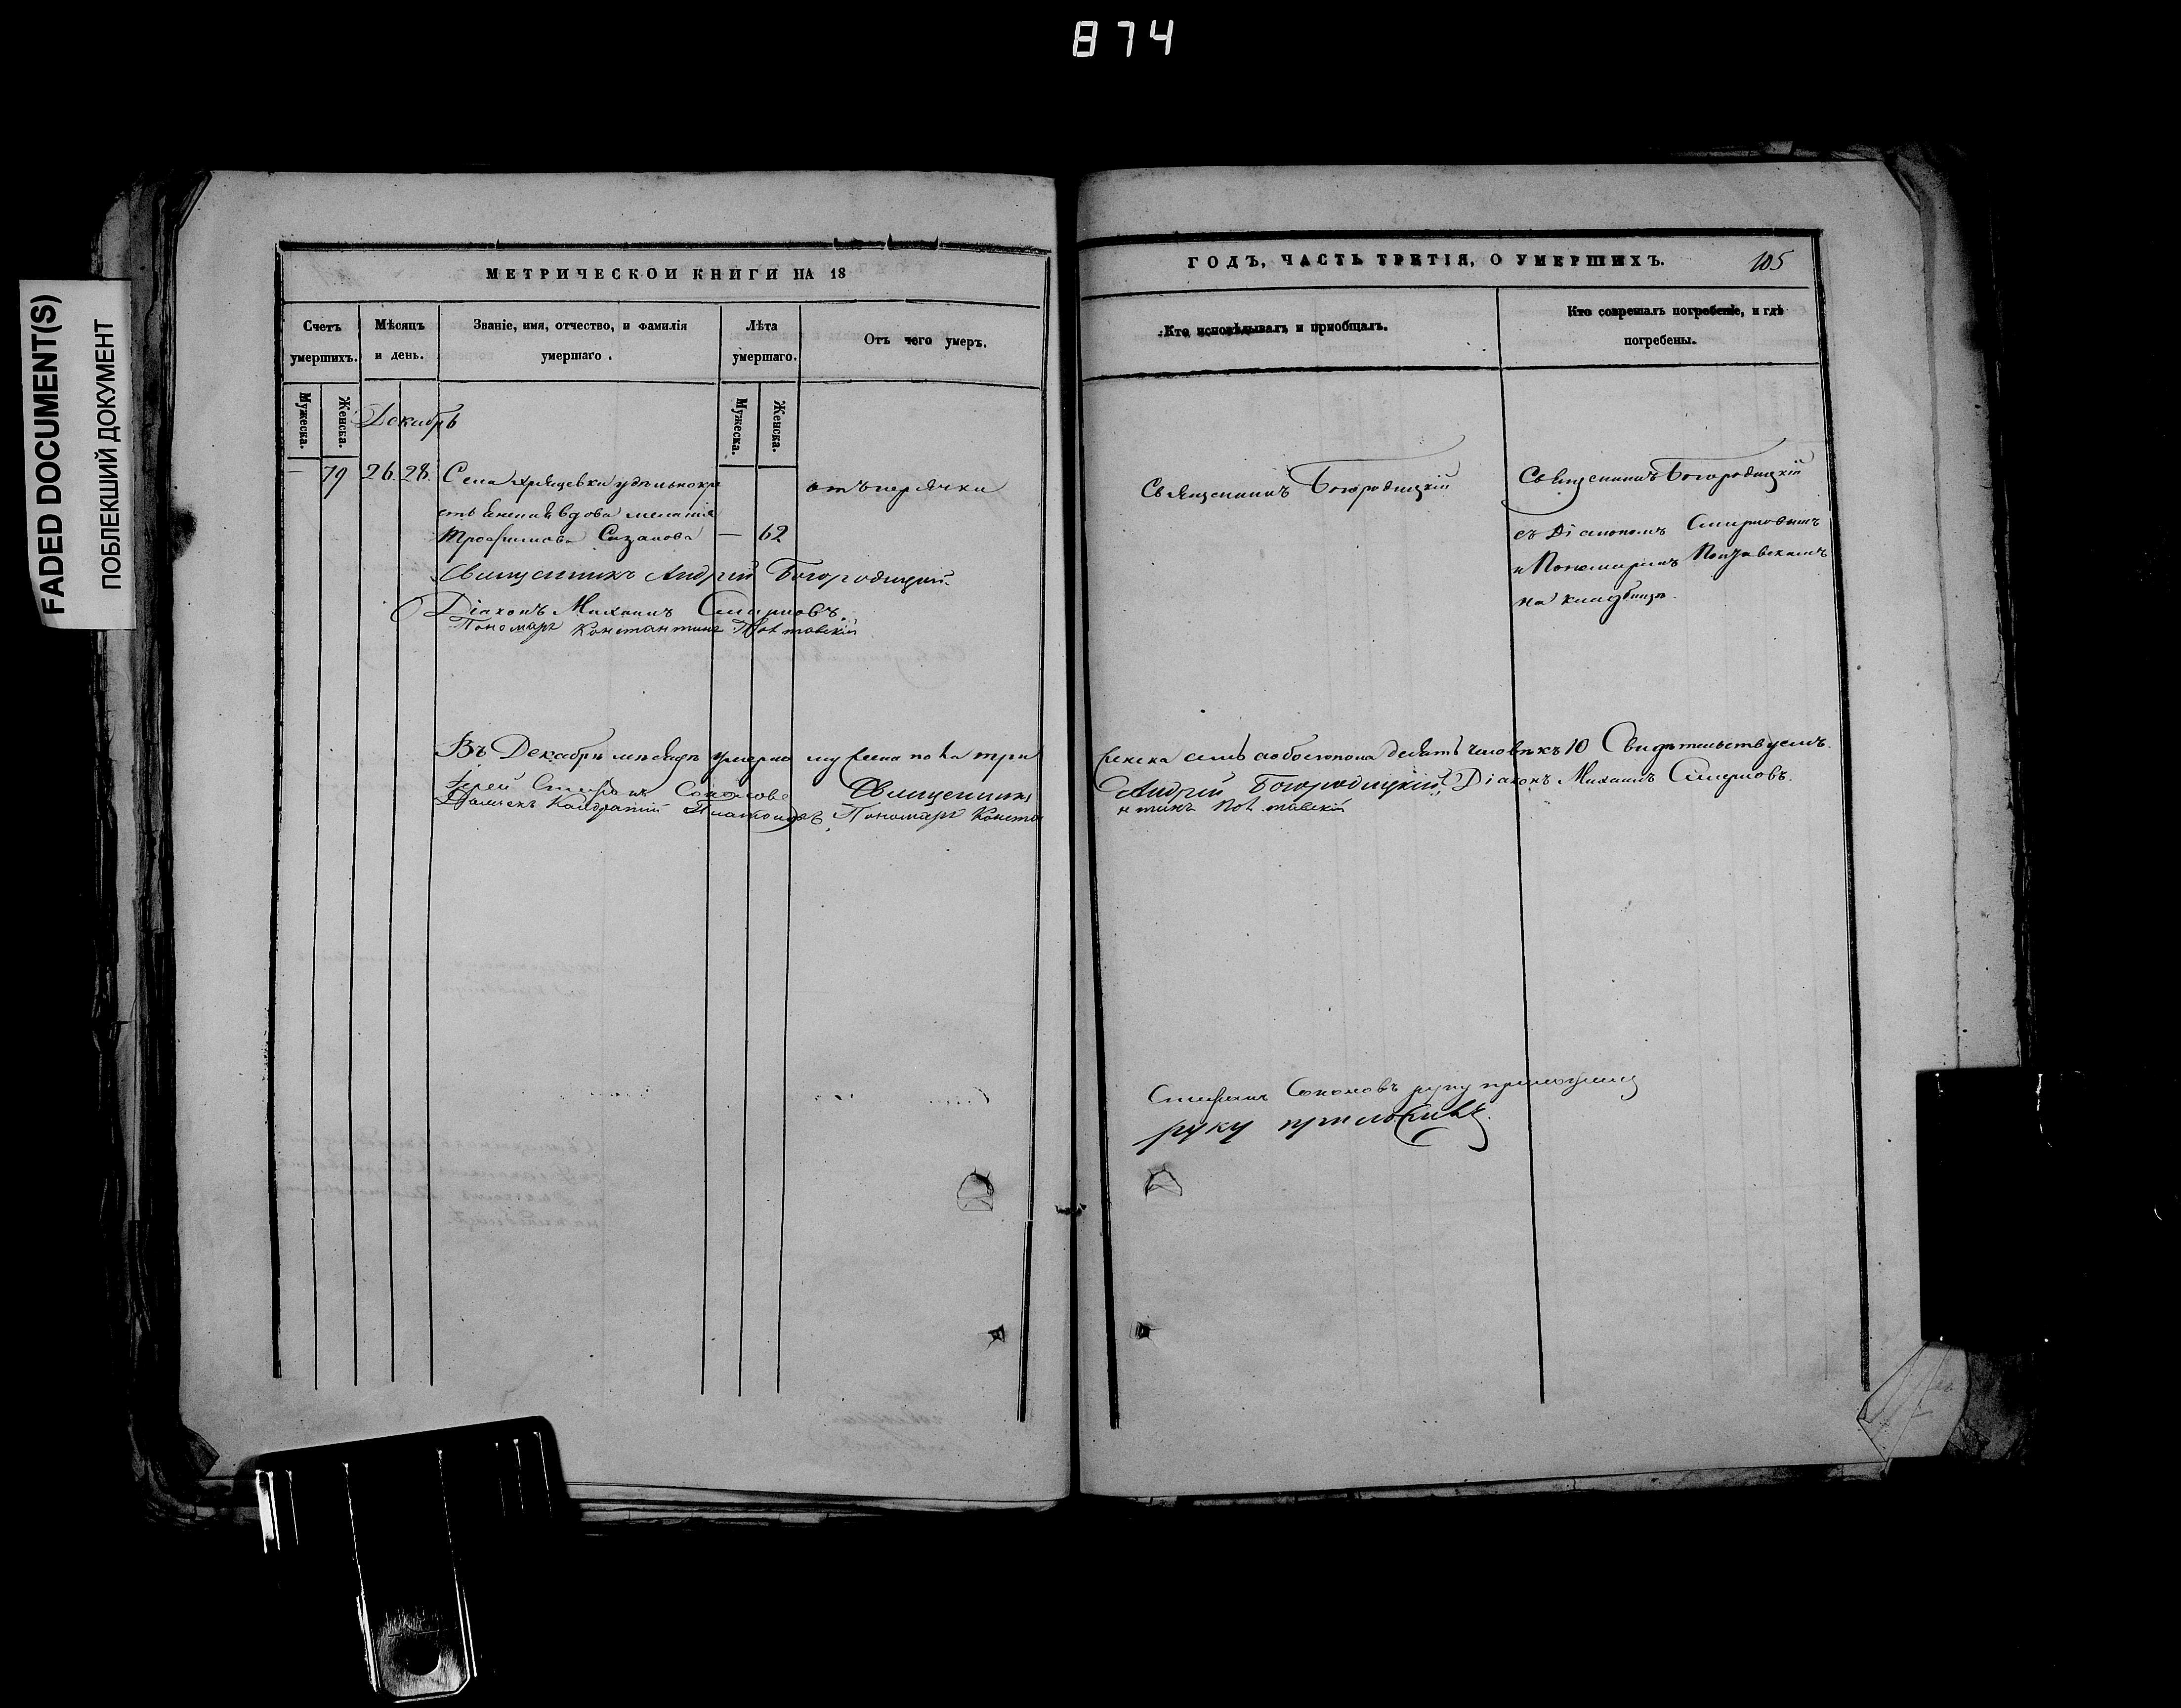 874
FADED DOCUMENT(S)
ПОБЛЕКШИЙ ДОКУМЕНТ
МЕТРИЧЕСКОЙ КНИГИ НА 18
Счетъ умершихъ.
Мѣсяцъ и день.
Званіе, имя, отчество, и фамилія умершаго.
Лѣта умершаго.
Отъ чего умеръ.
Мужеска.
Женска.
Мужеска.
Женска.
Декабрь
— 79 26. 28. Села Хрящевки удѣльнокре
стьянская вдова Меланія
Трофимова Сазанова — 62
отъ горячки
Священникъ Андрей Богородицкій
Діаконъ Михаилъ Смирновъ
Пономарь Константинъ Полтавскій
Въ Декабрѣ мѣсяцѣ умерло мужеска пола три
Іерей Соколовъ Священникъ
Кондратій Платоновъ Пономарь Конста
ГОДЪ, ЧАСТЬ ТРЕТІЯ, О УМЕРШИХЪ.
105
Кто исповѣдывалъ и пріобщалъ.
Кто совершалъ погребеніе, и гдѣ погребены.
Священникъ Богородицкій
Священникъ Богородицкій
съ Діакономъ Смирновымъ
и Пономаремъ Полтавскимъ
на кладбищѣ.
женска семь а обоего пола десять человѣкъ 10 Свидѣтельствуемъ.
Андрей Богородицкій Діаконъ Михаилъ Смирновъ.
нтинъ Полтавскій
Соколовъ руку приложилъ
руку приложилъ.